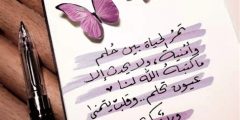 تمر الحياة بين حلم
وأمنية، ولا يحدث إلا
ما كتبه الله لنا
عيون تحلم.. وقلب يتمنى